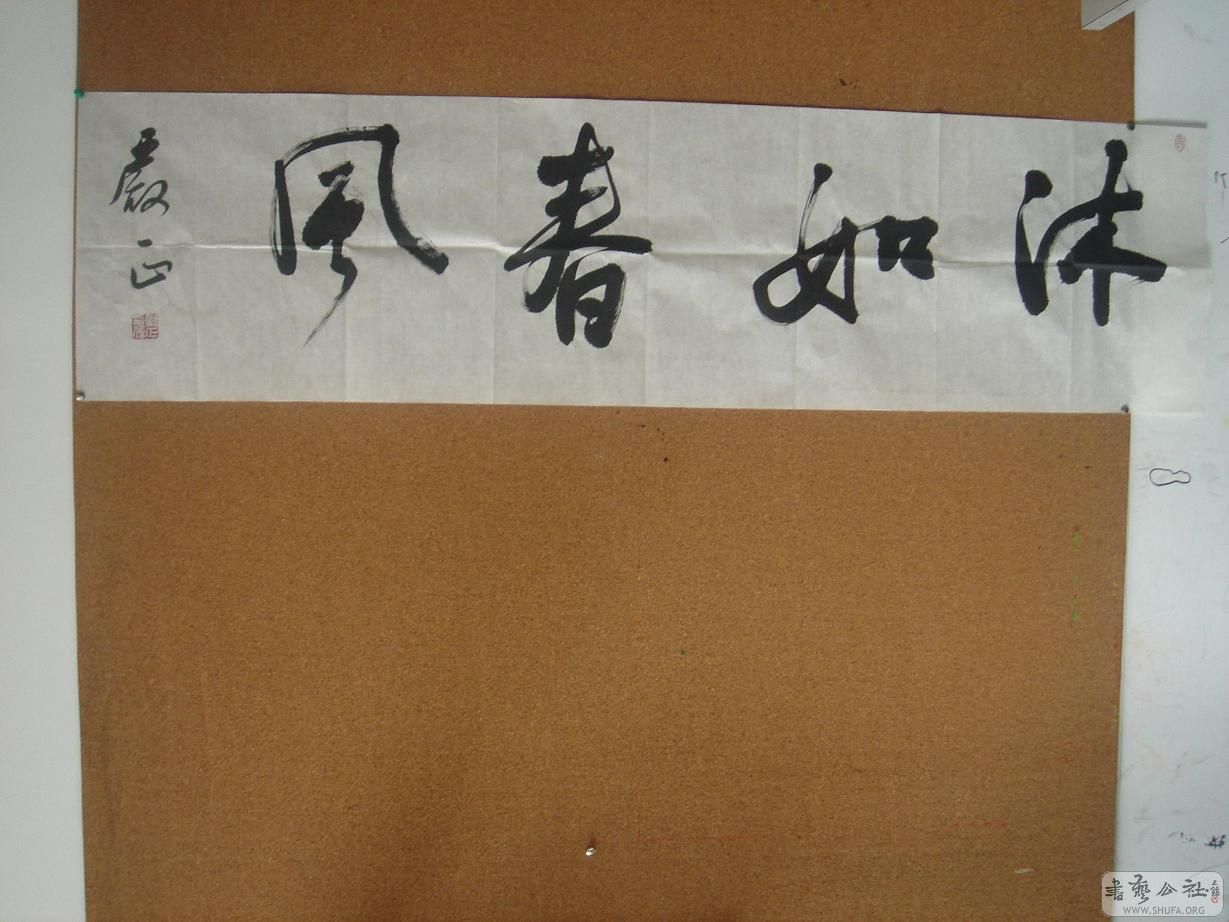 沐如春風
嚴正
書藝公社
WWW.SHUFA.ORG